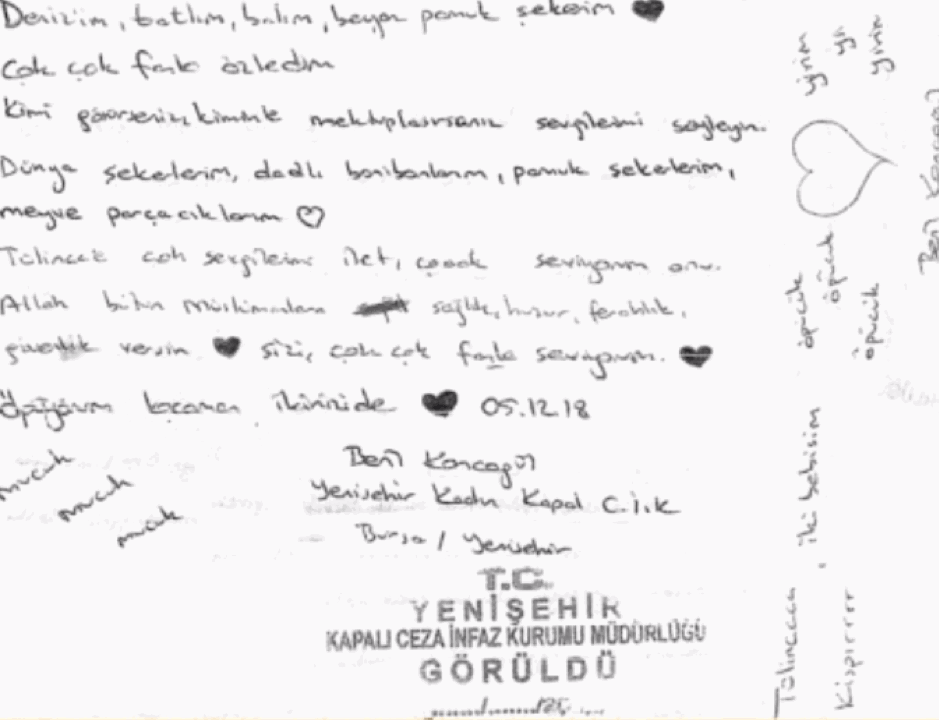 Denizim, tatlım, balım, beyaz pamuk şekerim
Çok çok fazla özledim
Kimi görürseniz, kiminle mektuplaşırsanız sevgilerimi söyleyin.
Dünya şekerlerim, dadlı bonibonlarım, pamuk şekerlerim,
meyve parçacıklarım
Tülincere çok sevgilerimi ilet, çoook seviyorum onu.
Allah bütün Müslümanlara sağlık, huzur, ferahlık,
güvenlik versin sizi, çok çok fazla seviyorum.
Öpüyorum kocaman ikinizide 05.12.18
mucuk
mucuk
mucuk
Beril Koncagül
Yenişehir Kadın Kapalı C.İ.K
Bursa / Yenişehir
T.C.
YENİŞEHİR
KAPALI CEZA İNFAZ KURUMU MÜDÜRLÜĞÜ
GÖRÜLDÜ
yirim
yirim
öpücük
öpücük
öpücük
iki bebişim
Beril Koncagül